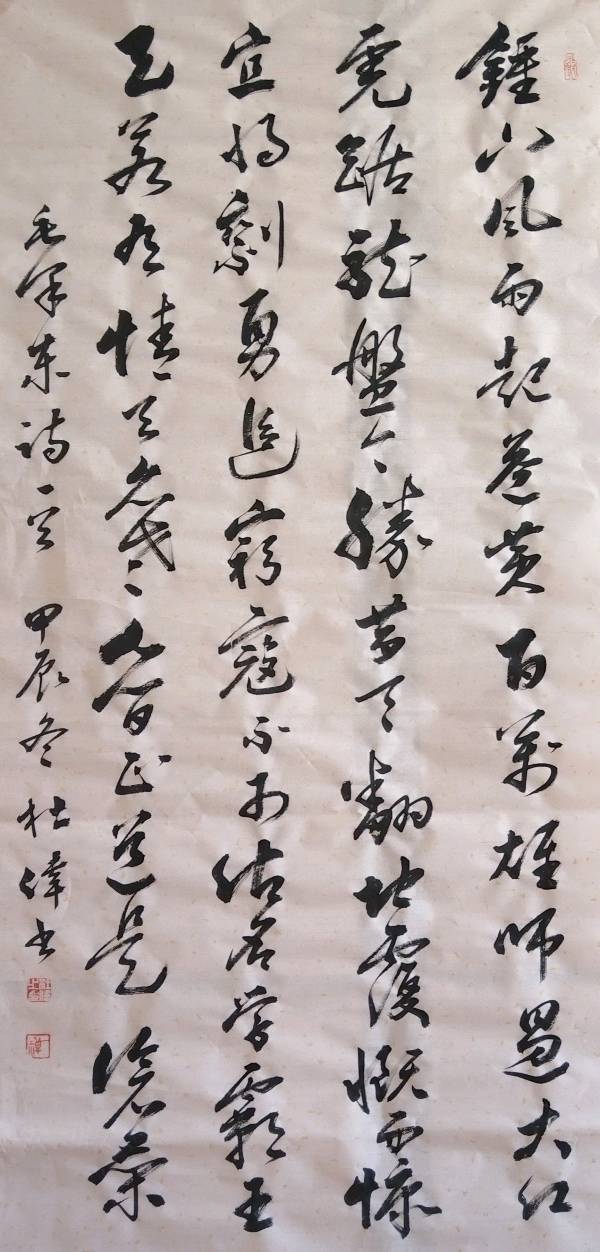 鍾山風雨起蒼黄百萬雄師過大江
虎踞龍盤今勝昔天翻地覆慨而慷
宜將剩勇追窮寇不可沽名學霸王
天若有情天亦老人間正道是滄桑
毛澤東詩一首 甲辰冬杜偉書